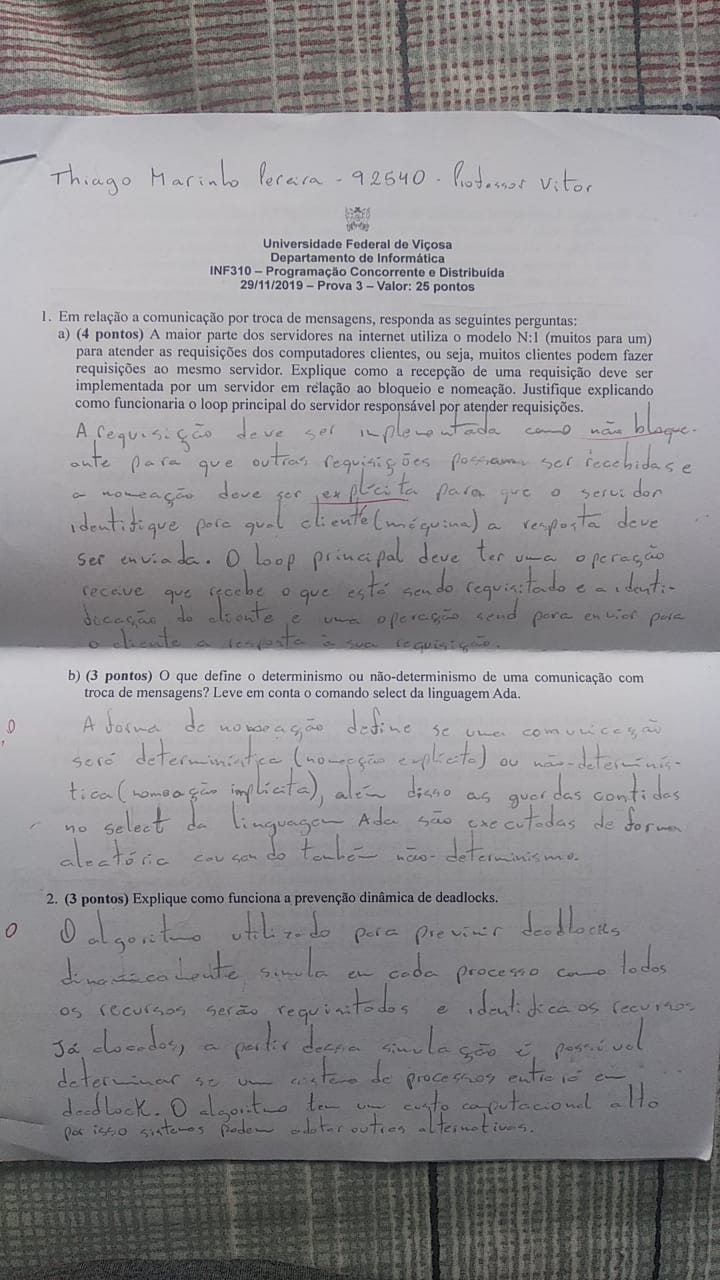 Thiago Marinho Pereira - 92540 - Professor Vitor
Universidade Federal de Viçosa
Departamento de Informática
INF310 – Programação Concorrente e Distribuída
29/11/2019 – Prova 3 – Valor: 25 pontos
1. Em relação a comunicação por troca de mensagens, responda as seguintes perguntas:
a) (4 pontos) A maior parte dos servidores na internet utiliza o modelo N:1 (muitos para um)
para atender as requisições dos computadores clientes, ou seja, muitos clientes podem fazer
requisições ao mesmo servidor. Explique como a recepção de uma requisição deve ser
implementada por um servidor em relação ao bloqueio e nomeação. Justifique explicando
como funcionaria o loop principal do servidor responsável por atender requisições.
A requisição deve ser implementada como não bloque-
ante para que outras requisições possam ser recebidas e
a nomeação deve ser explícita para que o servidor
identifique para qual cliente (máquina) a resposta deve
ser enviada. O loop principal deve ter uma operação
receive que recebe o que está sendo requisitado e a identi-
ficação do cliente e uma operação send para enviar para
o cliente a resposta à sua requisição.
b) (3 pontos) O que define o determinismo ou não-determinismo de uma comunicação com
troca de mensagens? Leve em conta o comando select da linguagem Ada.
0
A forma de nomeação define se uma comunicação
será determinística (nomeação explícita) ou não-determinis-
tica (nomeação implícita), além disso as guardas contidas
no select da linguagem Ada são executadas de forma
aleatória causando também não-determinismo.
2. (3 pontos) Explique como funciona a prevenção dinâmica de deadlocks.
0
O algoritmo utilizado para previnir deadlocks
dinamicamente, simula em cada processo como todos
os recursos serão requisitados e identifica os recursos
já alocados, a partir dessa simulação é possível
determinar se um sistema de processos entrará em
deadlock. O algoritmo tem um custo computacional alto
por isso sistemas podem adotar outras alternativas.